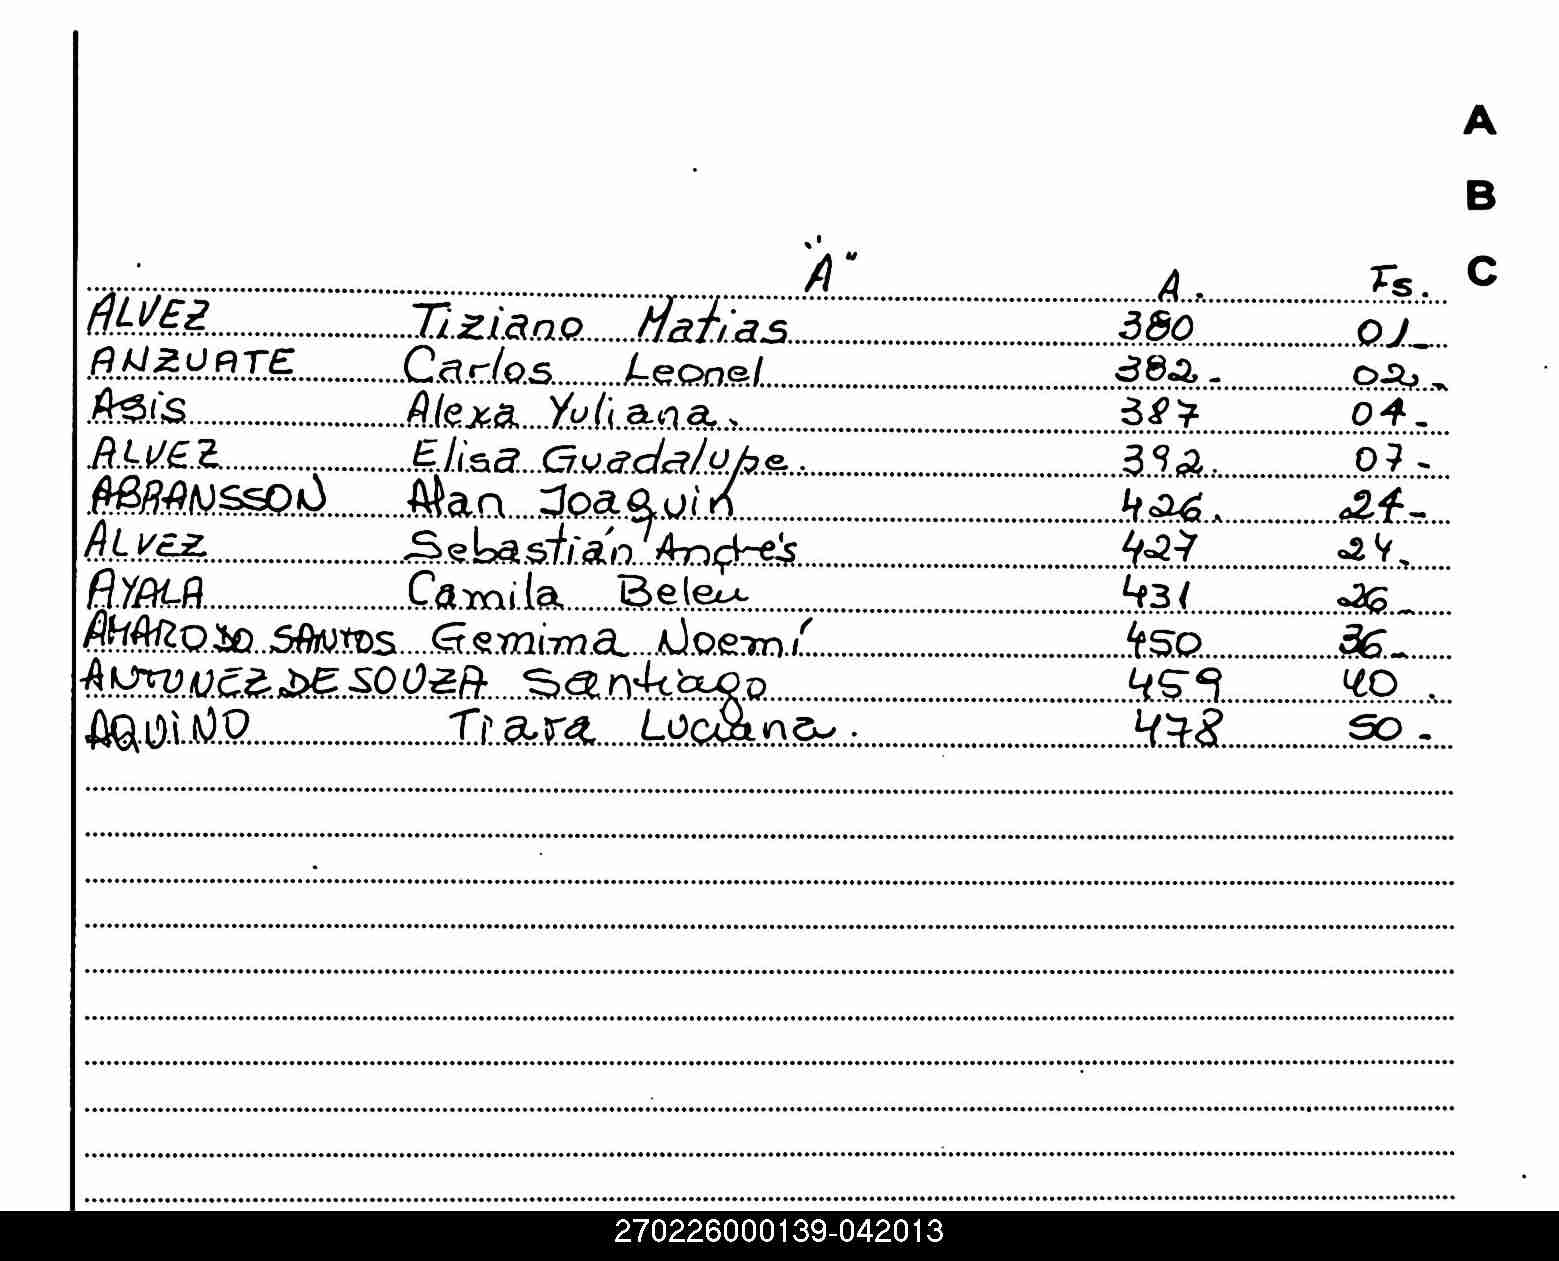 A
B
C
"A" A. Fs.
ALVEZ Tiziano Matias 380 01_
ANZUATE Carlos Leonel 382. 02_
ASIS Alexa Yuliana. 387 04_
ALVEZ Elisa Guadalupe. 392. 07_
ABRANSSON Alan Joaquín 426. 24_
ALVEZ Sebastián Andrés 427 24.
AYALA Camila Belén 431 26_
AMARO DO SANTOS Gemima Noemí 450 36_
ANTUNEZ DE SOUZA Santiago 459 40.
AQUiNO Tiara Luciana. 478 50_
270226000139-042013